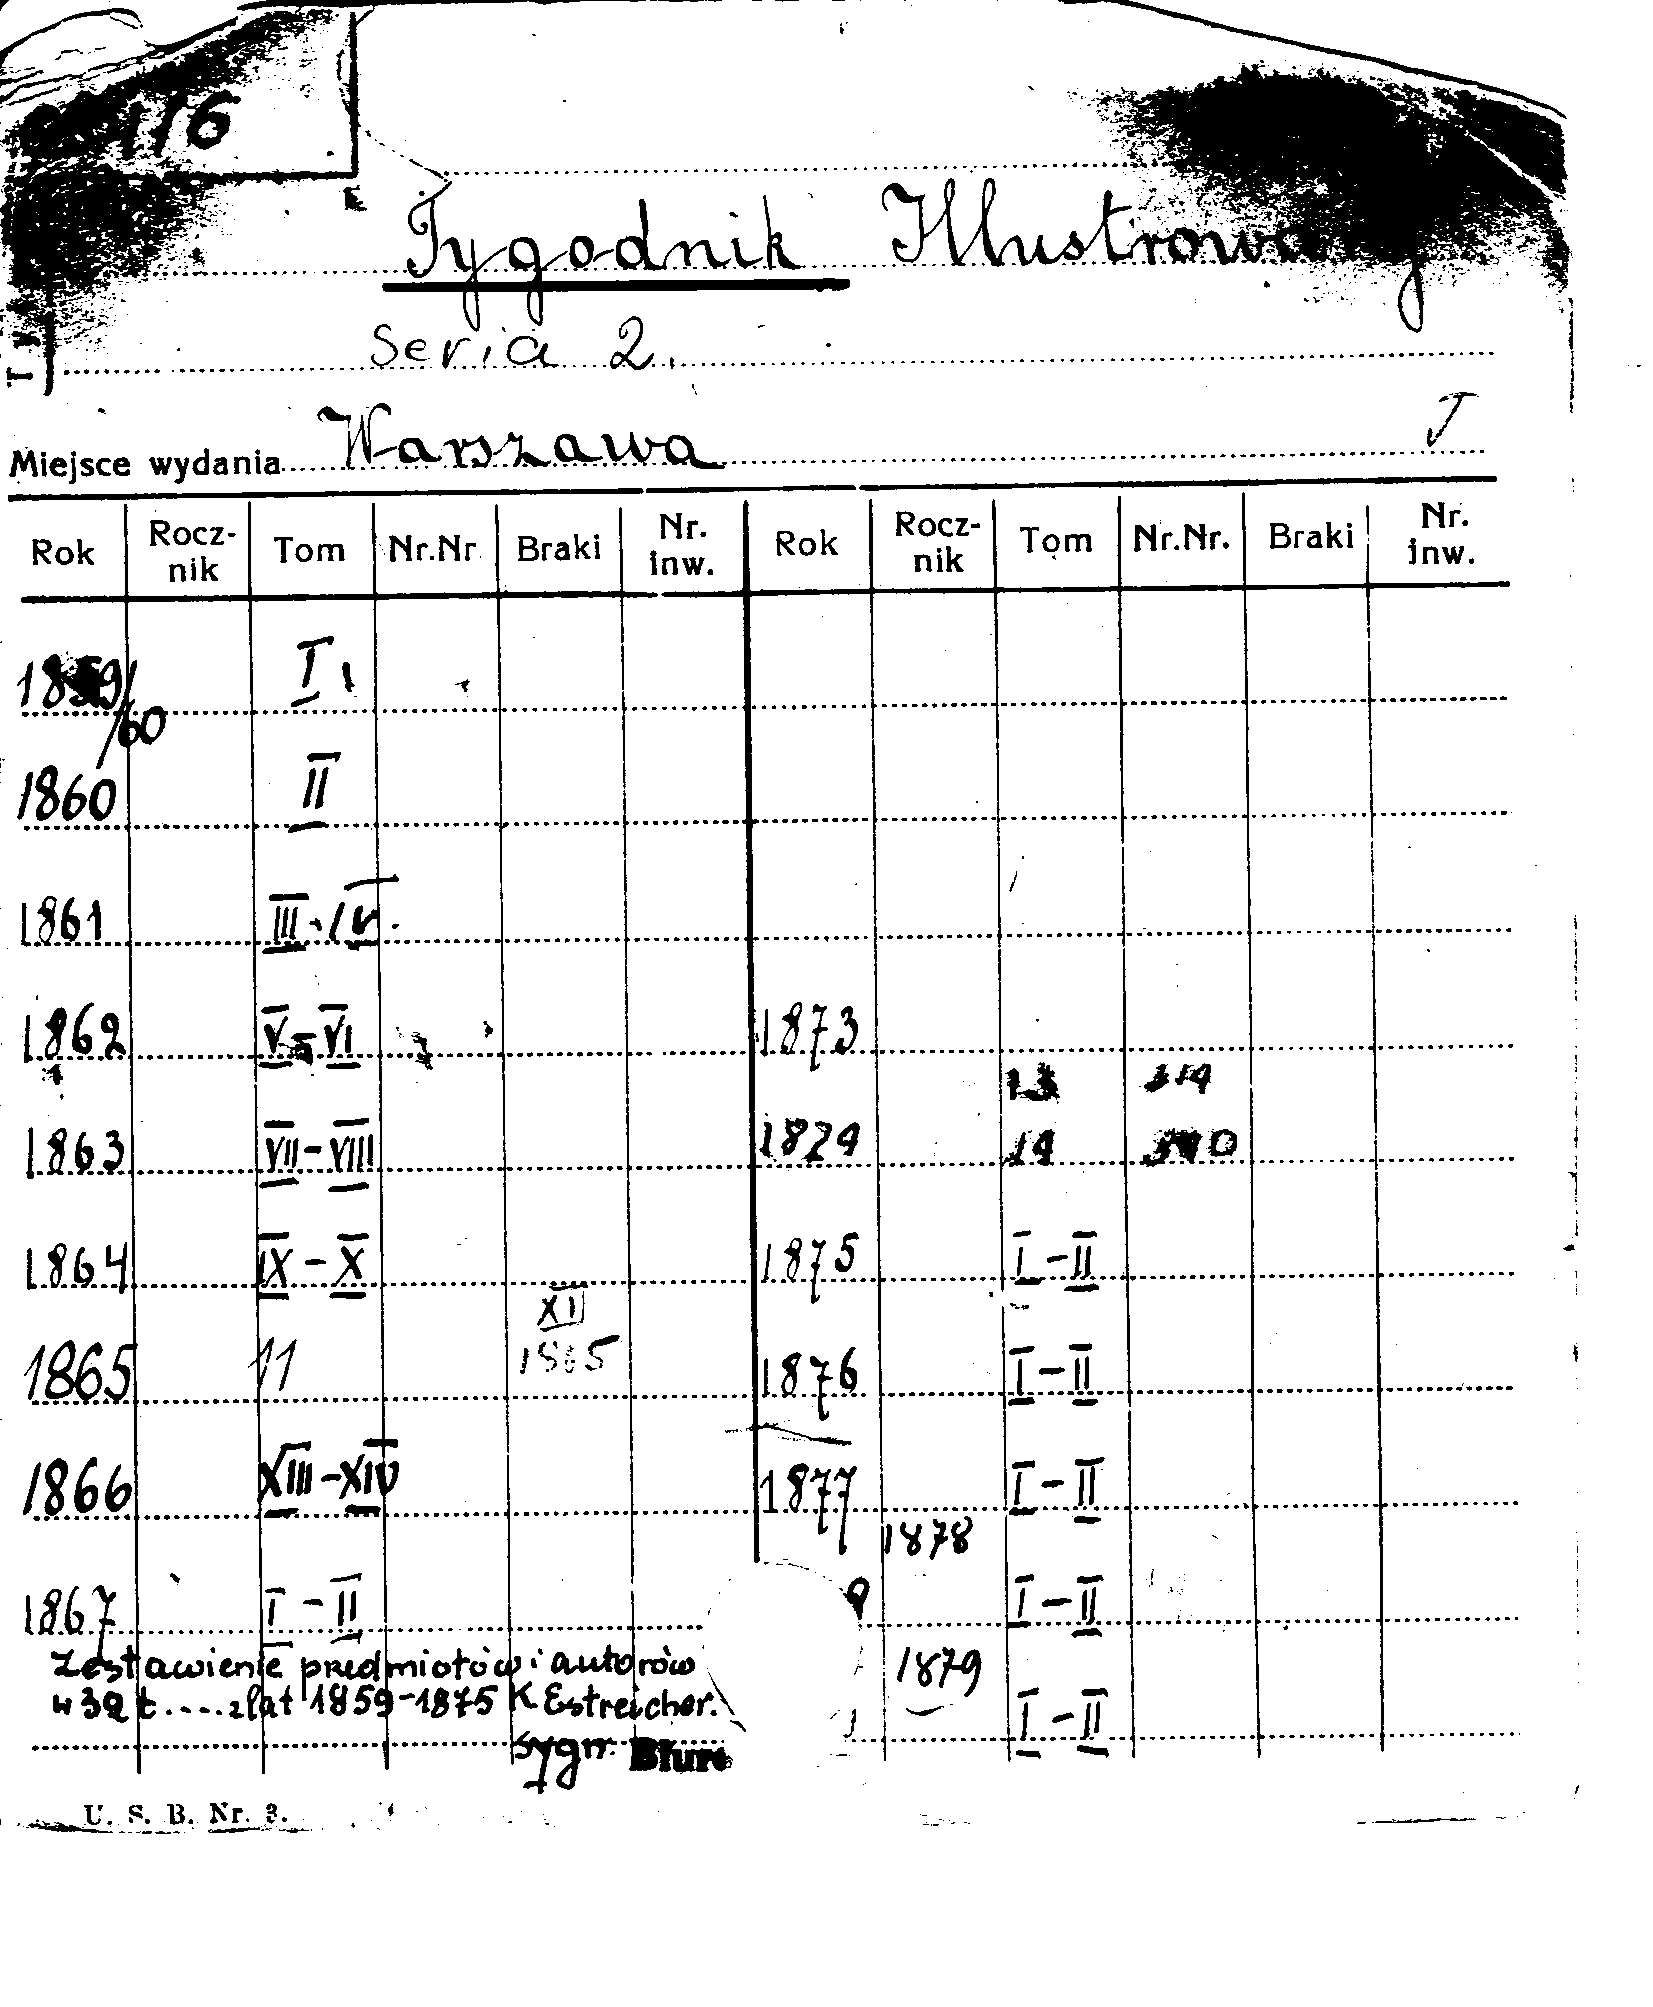 1/6
Tygodnik Illustrowany
Seria 2.
Miejsce wydania Warszawa J
Rok Rocz-nik Tom Nr.Nr Braki Nr. inw. Rok Rocz-nik Tom Nr.Nr. Braki Nr. inw.
1859/60 I
1860 II
1861 III-IV.
1862 V-VI 1873
13 314
1863 VII-VIII 1874 14
1864 IX-X 1875 I-II
XII
1865 11 1865 1876 I-II
1866 XIII-XIV 1877 I-II
1878
1867 I-II I-II
Zestawienie przedmiotów i autorów 1879
w 32 t....z lat 1859-1875 K Estreicher. I-II
Sygn. Biuro
U. S. B. Nr. 3.